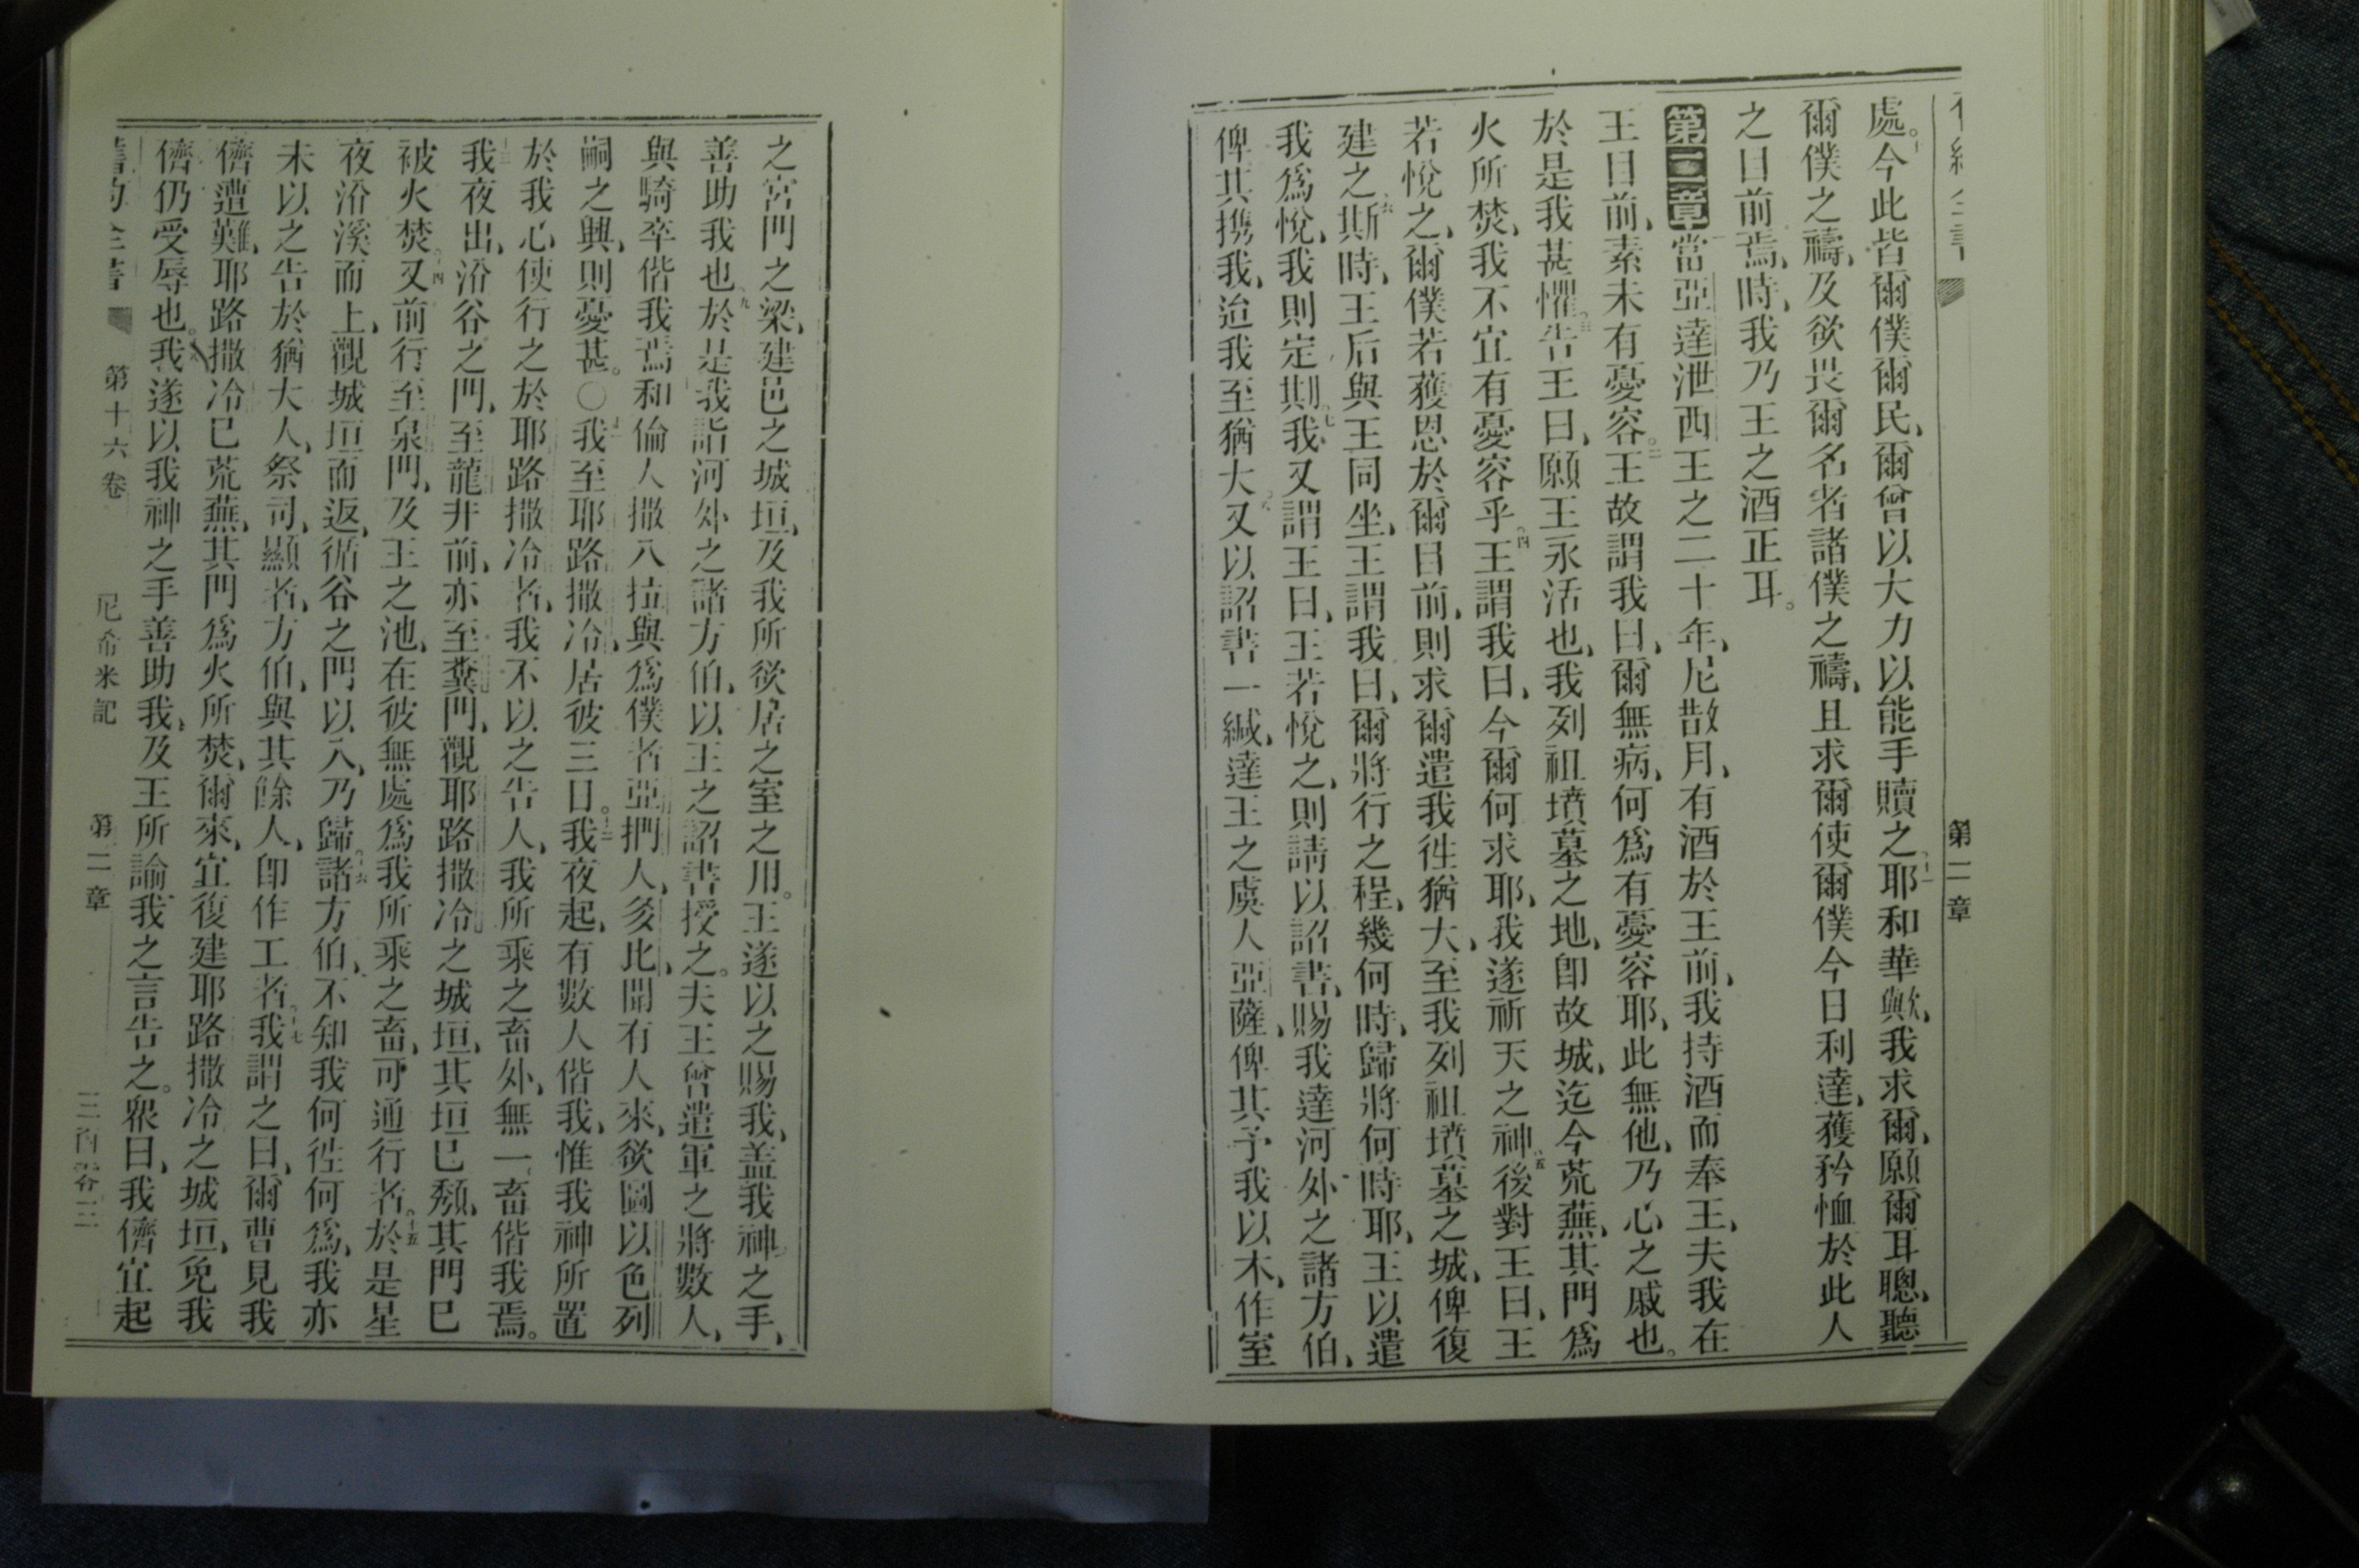 第一章
處。今此皆爾僕爾民、爾曾以大力以能手贖之、耶和華歟、我求爾、願爾耳聰、聽
爾僕之禱、及欲畏爾名者諸僕之禱、且求爾使爾僕今日利達、獲矜恤於此人
之目前焉、時、我乃王之酒正耳。
第二章 當亞達泄西王之二十年、尼散月、有酒於王前、我持酒而奉王、夫我在
王目前、素未有憂容。二王故謂我曰、爾無病、何爲有憂容耶、此無他、乃心之戚也。
於是我甚懼、三告王曰、願王永活也、我列祖墳墓之地、卽故城、迄今荒蕪、其門爲
火所焚、我不宜有憂容乎、四王謂我曰、今爾何求耶、我遂祈天之神、五後對王曰、王
若悅之、爾僕若獲恩於爾目前、則求爾遣我徃猶大、至我列祖墳墓之城、俾復
建之、六斯時、王后與王同坐、王謂我曰、爾將行之程、幾何時、歸將何時耶、王以遣
我爲悅、我則定期、七我又謂王曰、王若悅之、則請以詔書、賜我達河外之諸方伯、
俾其携我、迨我至猶大、八又以詔書一緘、達王之虞人亞薩、俾其予我以木、作室
之宮門之梁、建邑之城垣、及我所欲居之室之用。王遂以之賜我、盖我神之手、
善助我也、九於是我詣河外之諸方伯、以王之詔書授之。夫王曾遣軍之將數人、
與騎卒偕我焉、和倫人撒八拉與爲僕者亞捫人、多比、聞有人來、欲圖以色列
嗣之興、則憂甚。〇十一我至耶路撒冷、居彼三日。十二我夜起、有數人偕我、惟我神所置
於我心使行之於耶路撒冷者、我不以之告人、我所乘之畜外、無一畜偕我焉。
十三我夜出、沿谷之門、至龍井前、亦至糞門、觀耶路撒冷之城垣、其垣已頹、其門已
被火焚。十四又前行至泉門、及王之池、在彼無處爲我所乘之畜、可通行者。十五於是星
夜沿溪而上、觀城垣而返、循谷之門以入、乃歸。十六諸方伯、不知我何徃何爲、我亦
未以之告於猶大人、祭司、顯者、方伯、與其餘人、卽作工者。十七我謂之曰、爾曹見我
儕遭難、耶路撒冷已荒蕪、其門爲火所焚、爾來、宜復建耶路撒冷之城垣、免我
儕仍受辱也。我遂以我神之手善助我、及王所諭我之言告之。衆曰、我儕宜起
舊約全書 第十六卷 尼希米記 第二章